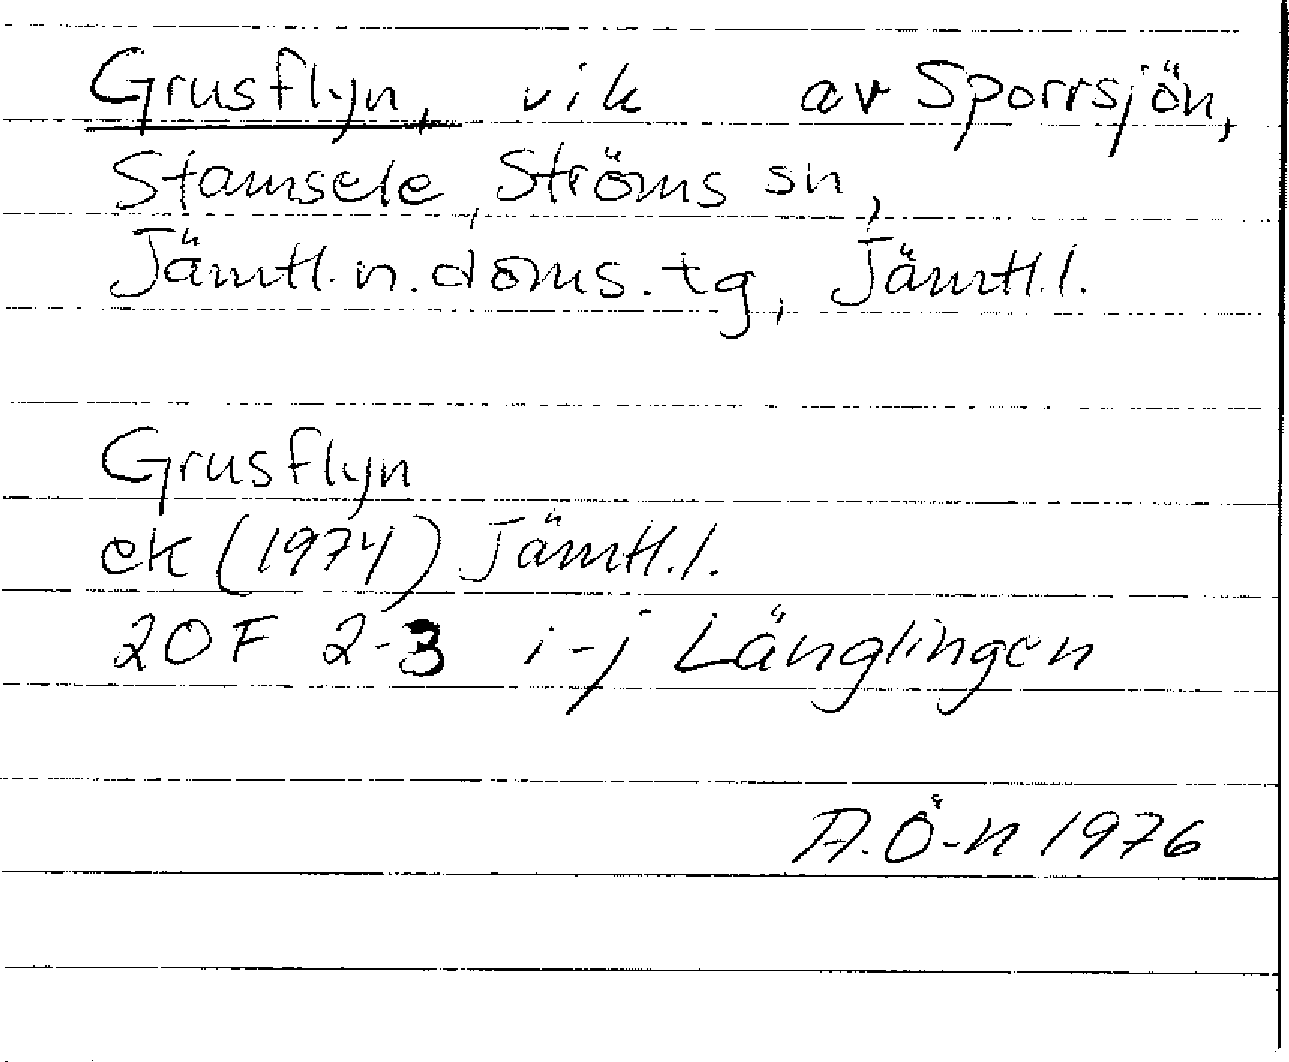 Grusflyn, vik av Sporrsjön,
Stamsele, Ströms sn,
Jämtl. n. doms. tg, Jämtl. l.
Grusflyn
ek (1974) Jämtl. l.
20F 2-3 i-j Länglingen
A. Ö-n 1976